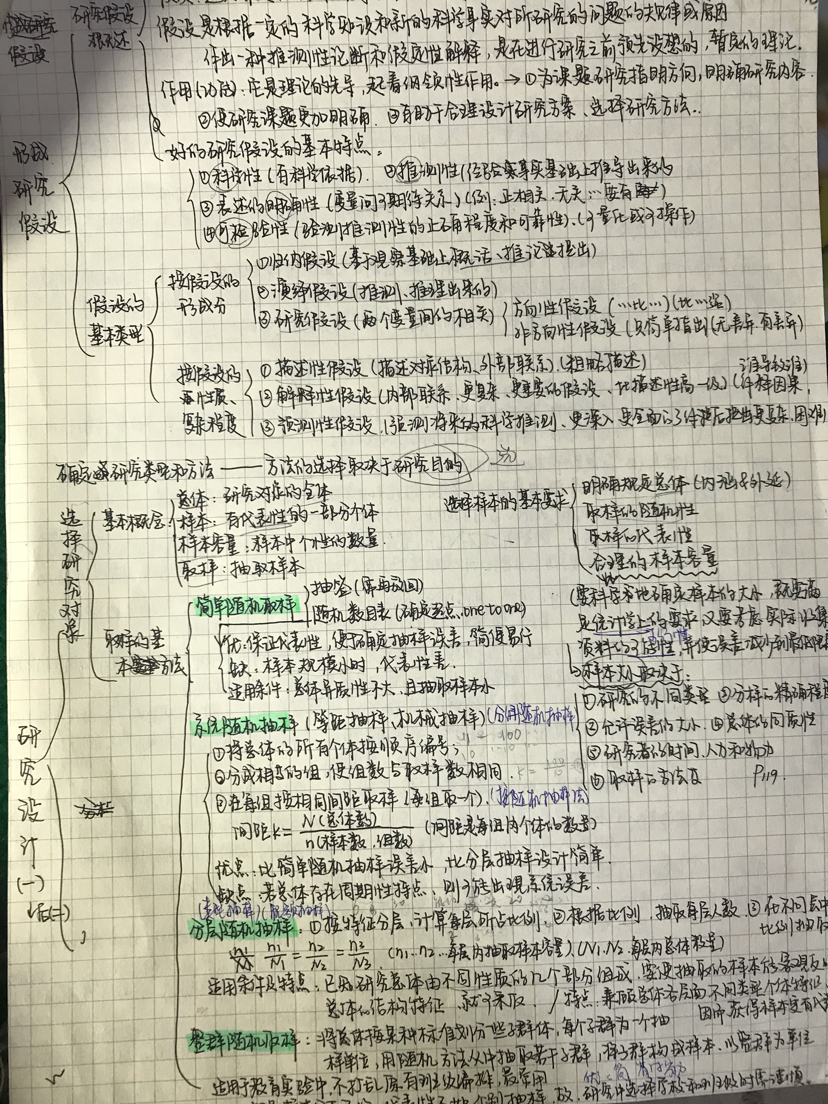 研究假设
假设是根据一定的科学知识和新的科学事实对所研究的问题的规律或原因
作出一种推测性论断和假定性解释，是在进行研究之前预先设想的，暂定的理论.
作用(功能)：它是理论的先导，起着纲领性作用。→ ①为课题研究指明方向，明确研究内容
②使研究课题更加明确. ③有助于合理设计研究方案、选择研究方法..
好的研究假设的基本特点。
形成研究假设
①科学性(有科学依据). ②推测性(经验事实基础上推导出来的
③表述的明确性(变量间可期待关系)(例：正相关.无关…要有
④可检验性(验测推测性的正确程度和可靠性).(可量化或可操作)
假设的基本类型
按假设的形成分
①归纳假设(基于观察基础上概括、推论并提出)
②演绎假设(推测、推理出来的)
③研究假设(两个变量间的相关)
方向性假设(…比…)(比…强)
非方向性假设(只简单指出(无差异.有差异)
按假设的性质、复杂程度
①描述性假设(描述对象结构、外部联系).(粗略描述)
②解释性假设(内部联系、更复杂、更重要的假设、比描述性高一级)(解释因果，
③预测性假设.(预测将来的科学推测、更深入更全面的了解后提出更复杂.困难
确定研究类型和方法 —— 方法的选择取决于研究目的
选择研究对象
基本概念
总体：研究对象的全体
样本：有代表性的一部分个体
样本容量：样本中个体的数量.
取样：抽取样本
选择样本的基本要求
明确规定总体(内涵&外延)
取样的随机性
取样的代表性
合理的样本容量
(要科学地确定样本的大小，就要满
足统计学上的要求，又要考虑实际收集
资料的可能性，并使误差减少到最低限
样本大小取决于：
①研究的不同类型 ②分析的精确程度
③允许误差的大小. ④总体的同质性
⑤研究者的时间、人力和物力
⑥取样的方法 P119.
取样的基本方法
简单随机取样
抽签(需再放回)
随机数目表(确定起点，one to one)
优：保证代表性，便于确定抽样误差，简便易行
缺：样本规模小时，代表性差.
适用条件：总体异质性不大，且抽取样本小
系统随机抽样(等距抽样、机械抽样)
①将总体的所有个体按顺序编号；
②分成相等的组，使组数与取样数相同.
③在每组按相同间距取样(每组取一个).
间距K=N(总体数)/n(样本数、组数) (间距是每组内个体的数量)
优点：比简单随机抽样误差小，比分层抽样设计简单.
缺点：若总体存在周期性特点，则可能出现系统误差.
分层随机抽样：①按特征分层，计算每层所占比例. ②根据比例，抽取每层人数 ③在不同层中
n1/N1=n2/N2=n3/N3 (n1.n2…每层内抽取样本容量).(N1.N2.每层内总体数量)
适用条件及特点：已知研究总体由不同性质的几个部分组成，要使抽取的样本能客观反
总体的结构特征，就可采取. /特点：兼顾总体各层面不同类型个体特征，
整群随机取样：将总体按某种标准划分成一些子群体，每个子群为一个抽
样单位，用随机方法从中抽取若干子群，将子群构成样本.以整群为单位
适用于教育实验中，不打乱原有班次编排，最常用
研究设计(一)